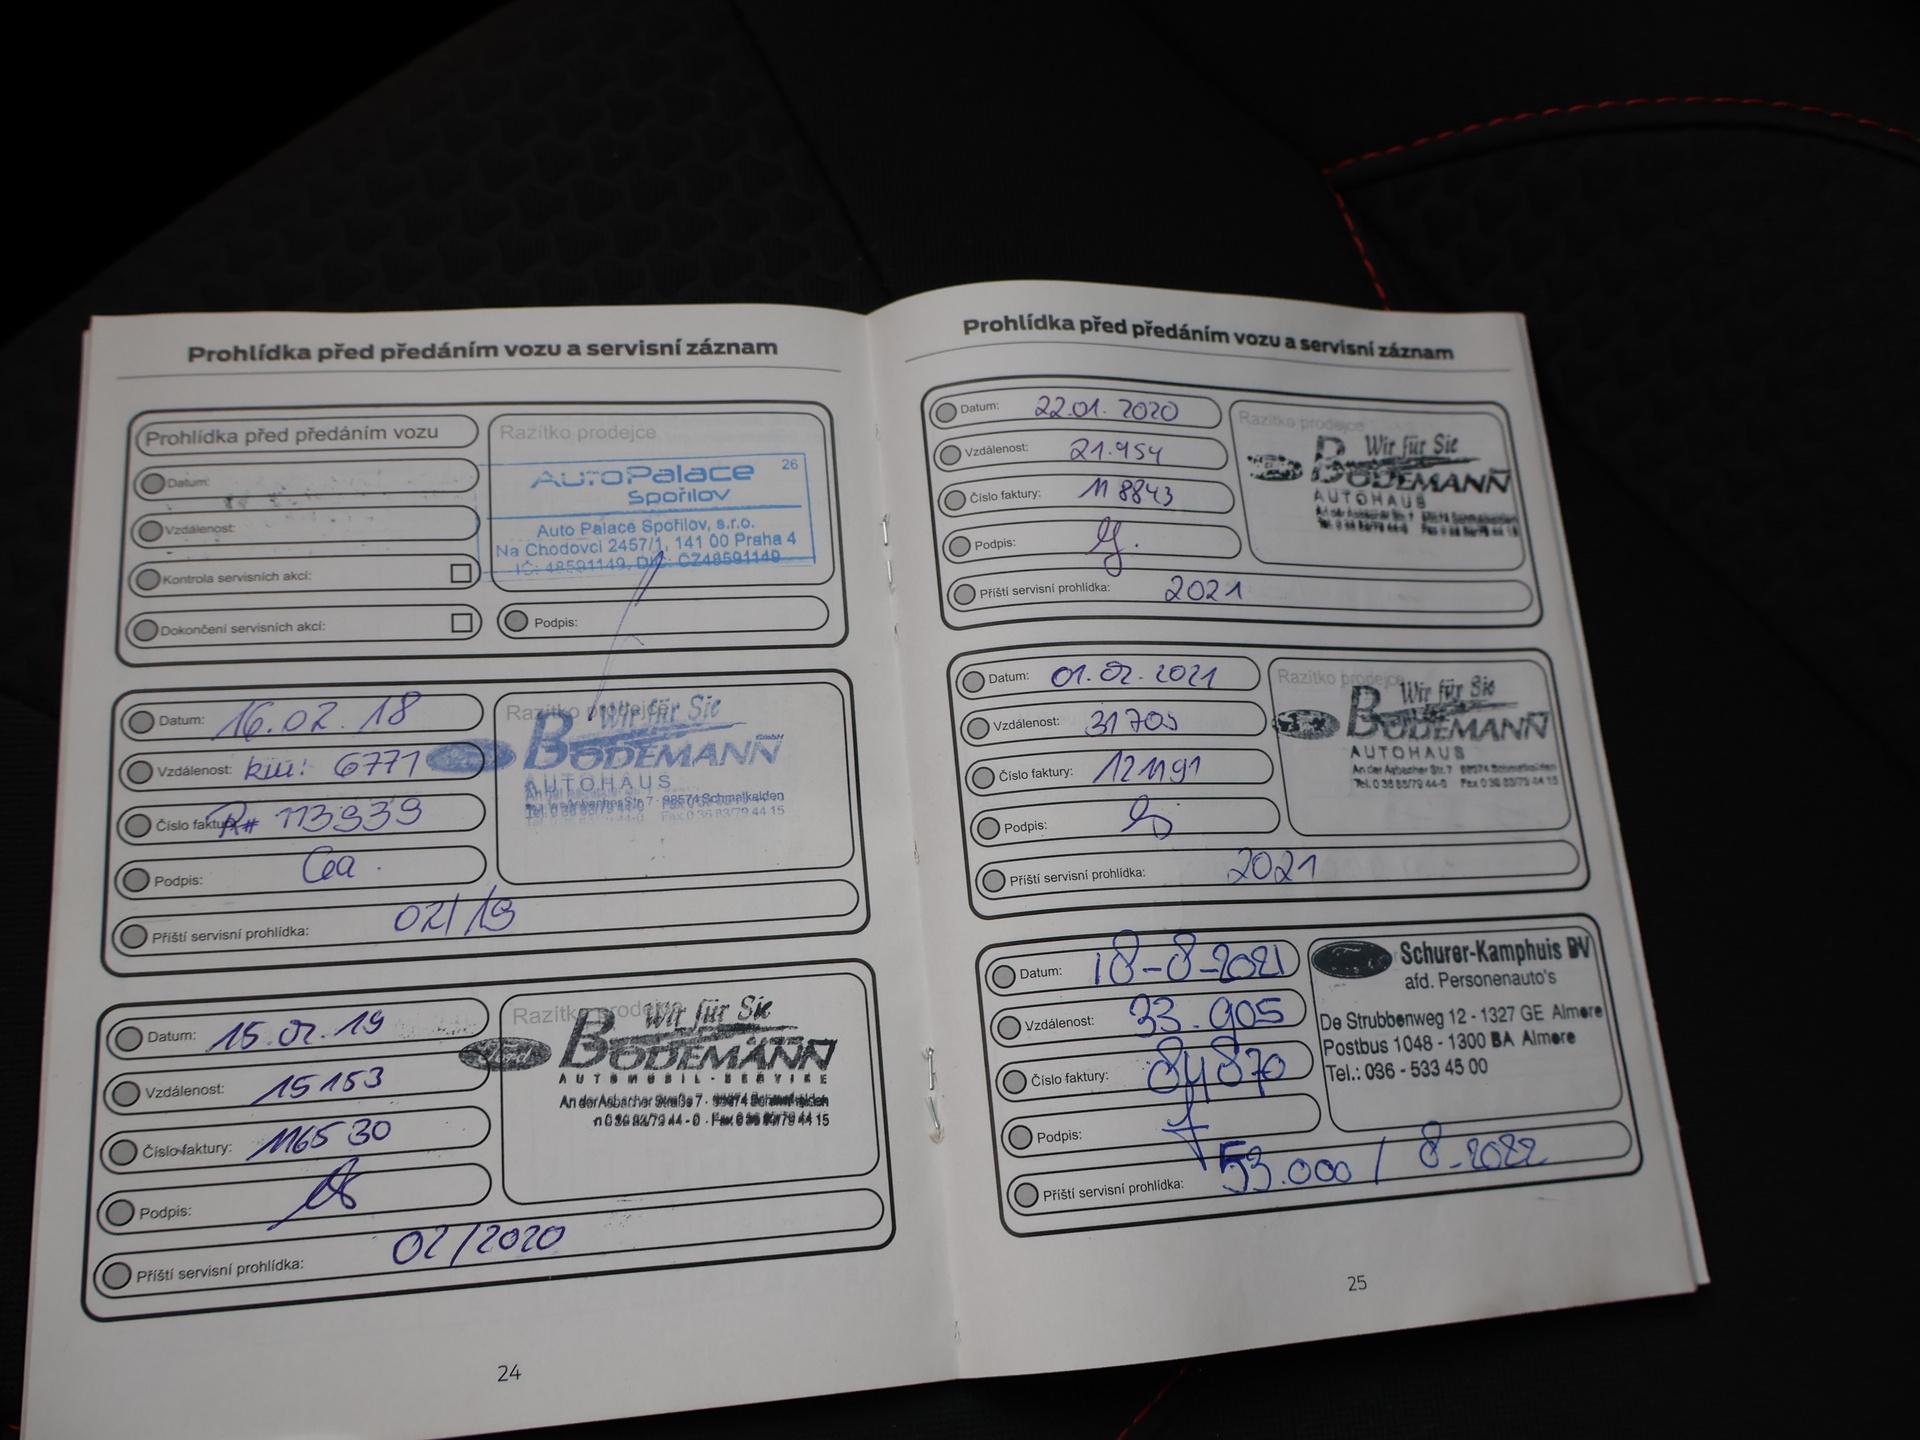 Prohlídka před předáním vozu a servisní záznam
Prohlídka před předáním vozu
Datum:
Vzdálenost:
Kontrola servisních akcí:
Dokončení servisních akcí:
Razítko prodejce
26
AutoPalace
Spořilov
Auto Palace Spořilov, s.r.o.
Na Chodovci 2457/1, 141 00 Praha 4
IČ: 48591149, DIČ: CZ48591149
Podpis:
Datum: 16.02.18
Vzdálenost: km: 6771
Číslo faktury: R# 113939
Podpis:
Příští servisní prohlídka: 02/19
Razítko prodejce
Wir für Sie
Ford BODEMANN GmbH
AUTOHAUS
An der Asbacher Str. 7 · 98574 Schmalkalden
Tel. 0 36 83/79 44-0 Fax 0 36 83/79 44 15
Datum: 15.02.19
Vzdálenost: 15153
Číslo faktury: 116530
Podpis:
Příští servisní prohlídka: 02/2020
Razítko prodejce
Wir für Sie
Ford BODEMANN
AUTOMOBIL-SERVICE
An der Asbacher Straße 7 · 98574 Schmalkalden
0 36 83/79 44-0 · Fax 0 36 83/79 44 15
24
Prohlídka před předáním vozu a servisní záznam
Datum: 22.01.2020
Vzdálenost: 21.954
Číslo faktury: 118843
Podpis:
Příští servisní prohlídka: 2021
Razítko prodejce
Wir für Sie
BODEMANN
AUTOHAUS
An der Asbacher Str. 7 98574 Schmalkalden
Tel. 0 36 83/79 44-0 Fax 0 36 83/79 44 15
Datum: 01.02.2021
Vzdálenost: 31705
Číslo faktury: 121191
Podpis:
Příští servisní prohlídka: 2021
Razítko prodejce
Wir für Sie
BODEMANN
AUTOHAUS
An der Asbacher Str. 7 98574 Schmalkalden
Tel. 0 36 83/79 44-0 Fax 0 36 83/79 44 15
Datum: 18-8-2021
Vzdálenost: 33.905
Číslo faktury: 84870
Podpis:
Příští servisní prohlídka: 53.000 / 8-2022
Schurer-Kamphuis BV
afd. Personenauto's
De Strubbenweg 12 - 1327 GE Almere
Postbus 1048 - 1300 BA Almere
Tel.: 036 - 533 45 00
25